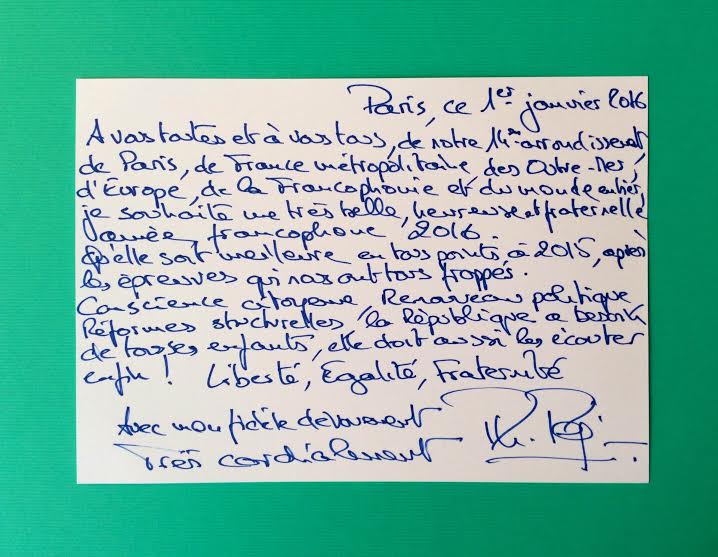 Paris, ce 1er janvier 2016
A vous toutes et à vous tous, de notre 14e arrondissement
de Paris, de France métropolitaine, des Outre-Mer,
d'Europe, de la Francophonie et du monde entier,
je souhaite une très belle, heureuse et fraternelle
année francophone 2016.
Qu'elle soit meilleure en tous points, à 2015, après
les épreuves qui nous ont tous frappés.
Conscience citoyenne, Renouveau politique
Réformes structurelles, la République a besoin
de tous ses enfants, elle doit aussi les écouter
enfin ! Liberté, Egalité, Fraternité
Avec mon fidèle dévouement
Très cordialement